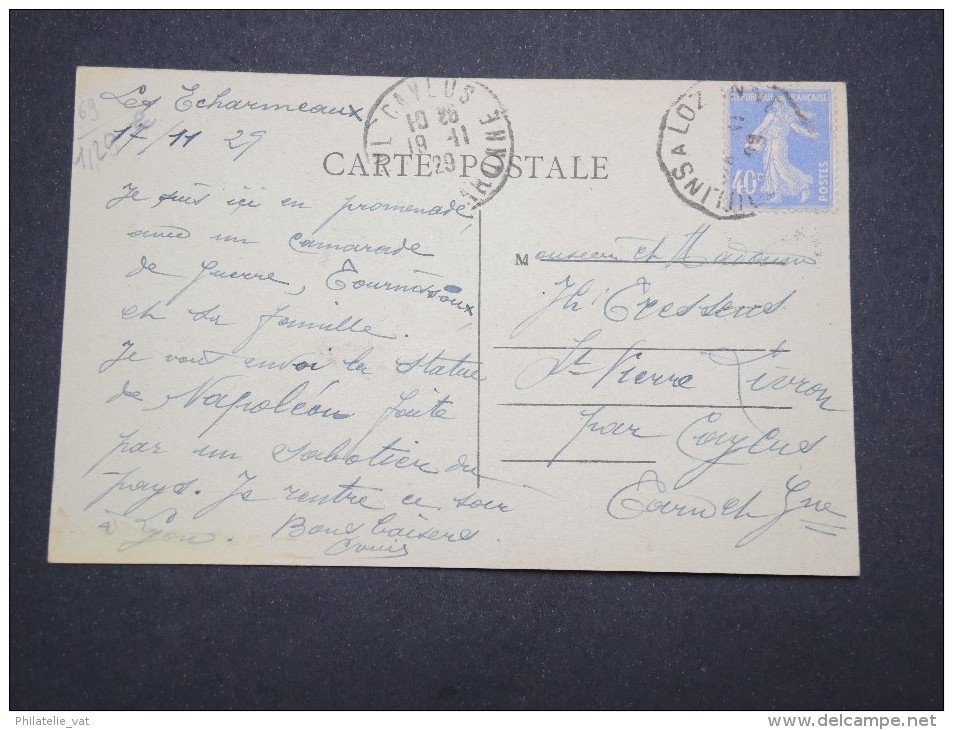 69
1,20
Les Echarmeaux
17/11 29
CAYLUS
10 26
19 -11
29
CARTE POSTALE
Je suis ici en promenade,
avec un camarade
de guerre,
et sa famille.
Je vous envoi la statue
de Napoléon faite
par un sabotier du
pays. Je rentre ce soir
à Lyon. Bons baisers
Louis
MOULINS A LOZ
REPUBLIQUE FRANÇAISE
40c
POSTES
Monsieur et Madame
St Pierre Livron
par Caylus
Tarn et Gne
Philatelie_vat
www.delcampe.net